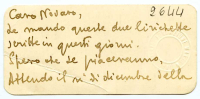 2644
Caro Novaro,
le mando queste due lirichette
scritte in questi giorni.
Spero che le piaceranno.
Attendo il n. di dicembre della